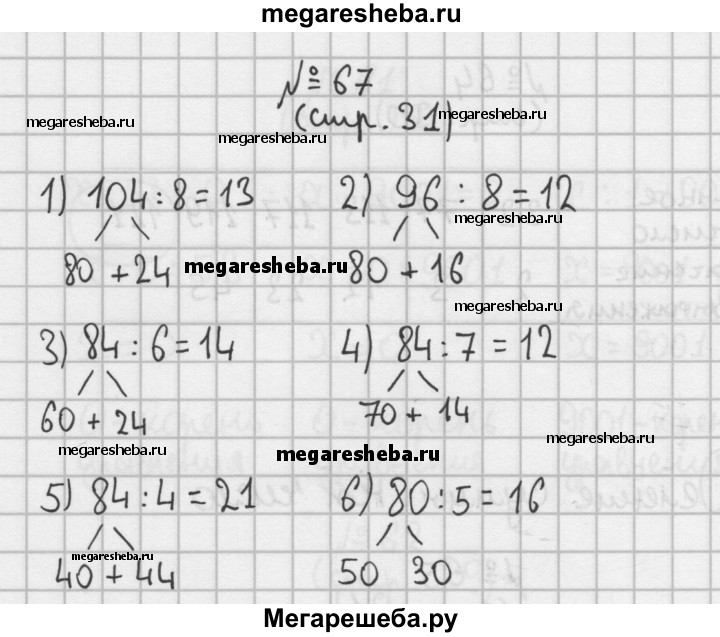 megaresheba.ru
№ 67
megaresheba.ru
(стр. 31)
megaresheba.ru
megaresheba.ru
1) 104 : 8 = 13
2) 96 : 8 = 12
megaresheba.ru
80 + 24
megaresheba.ru
80 + 16
megaresheba.ru
3) 84 : 6 = 14
4) 84 : 7 = 12
60 + 24
70 + 14
megaresheba.ru
megaresheba.ru
megaresheba.ru
5) 84 : 4 = 21
6) 80 : 5 = 16
megaresheba.ru
megaresheba.ru
40 + 44
50 30
Мегарешеба.ру